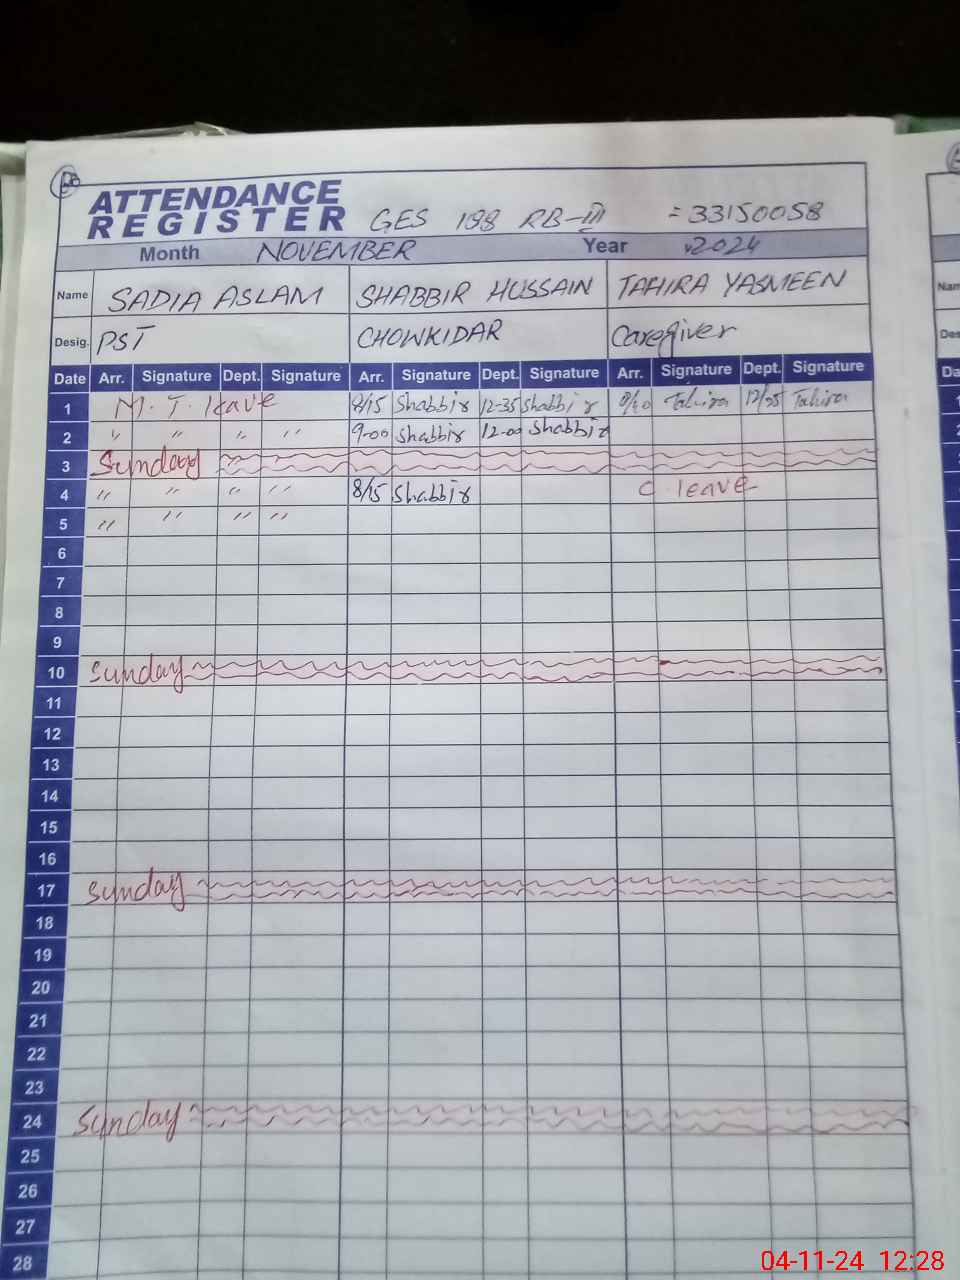 ATTENDANCE
REGISTER GES 198 RB-III = 33150058
Month NOVEMBER Year 2024
Name SADIA ASLAM SHABBIR HUSSAIN TAHIRA YASMEEN
Desig. PST CHOWKIDAR Caregiver
Date Arr. Signature Dept. Signature Arr. Signature Dept. Signature Arr. Signature Dept. Signature
1 M.T. leave 8/15 Shabbir 12-35 Shabbir Tahira 12/35 Tahira
2 〃 〃 〃 〃 9-00 Shabbir 12-00 Shabbir
3 Sunday
4 〃 〃 〃 〃 8/15 Shabbir C leave
5 〃 〃 〃 〃
6
7
8
9
10 Sunday
11
12
13
14
15
16
17 Sunday
18
19
20
21
22
23
24 Sunday
25
26
27
28
04-11-24 12:28